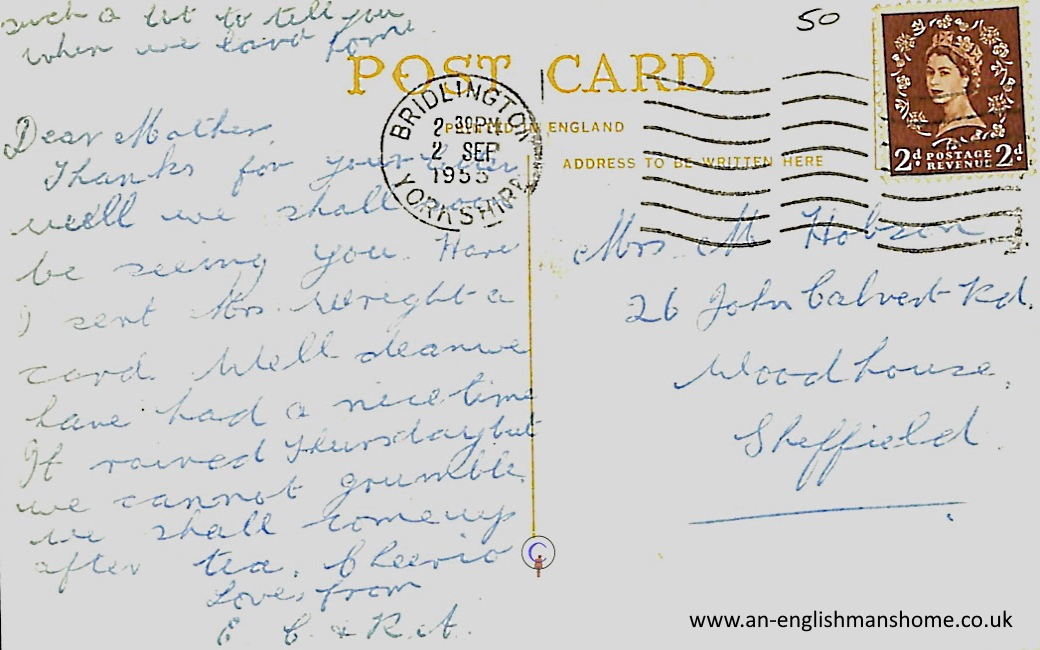 such a lot to tell you
when we land home.
50
POST CARD
PRINTED IN ENGLAND
ADDRESS TO BE WRITTEN HERE
BRIDLINGTON
2-30PM
2 SEP
1955
YORKSHIRE
2d POSTAGE 2d
REVENUE
Dear Mother,
Thanks for your letter
well we shall soon
be seeing you. Have
I sent Mrs. Wright a
card. Well dear we
have had a nice time
It rained Thursday but
we cannot grumble.
we shall come up
after tea. Cheerio
Love, from
E. C. & R. A.
Mrs. M Hobson
26 John Calvert Rd.
Woodhouse,
Sheffield.
www.an-englishmanshome.co.uk